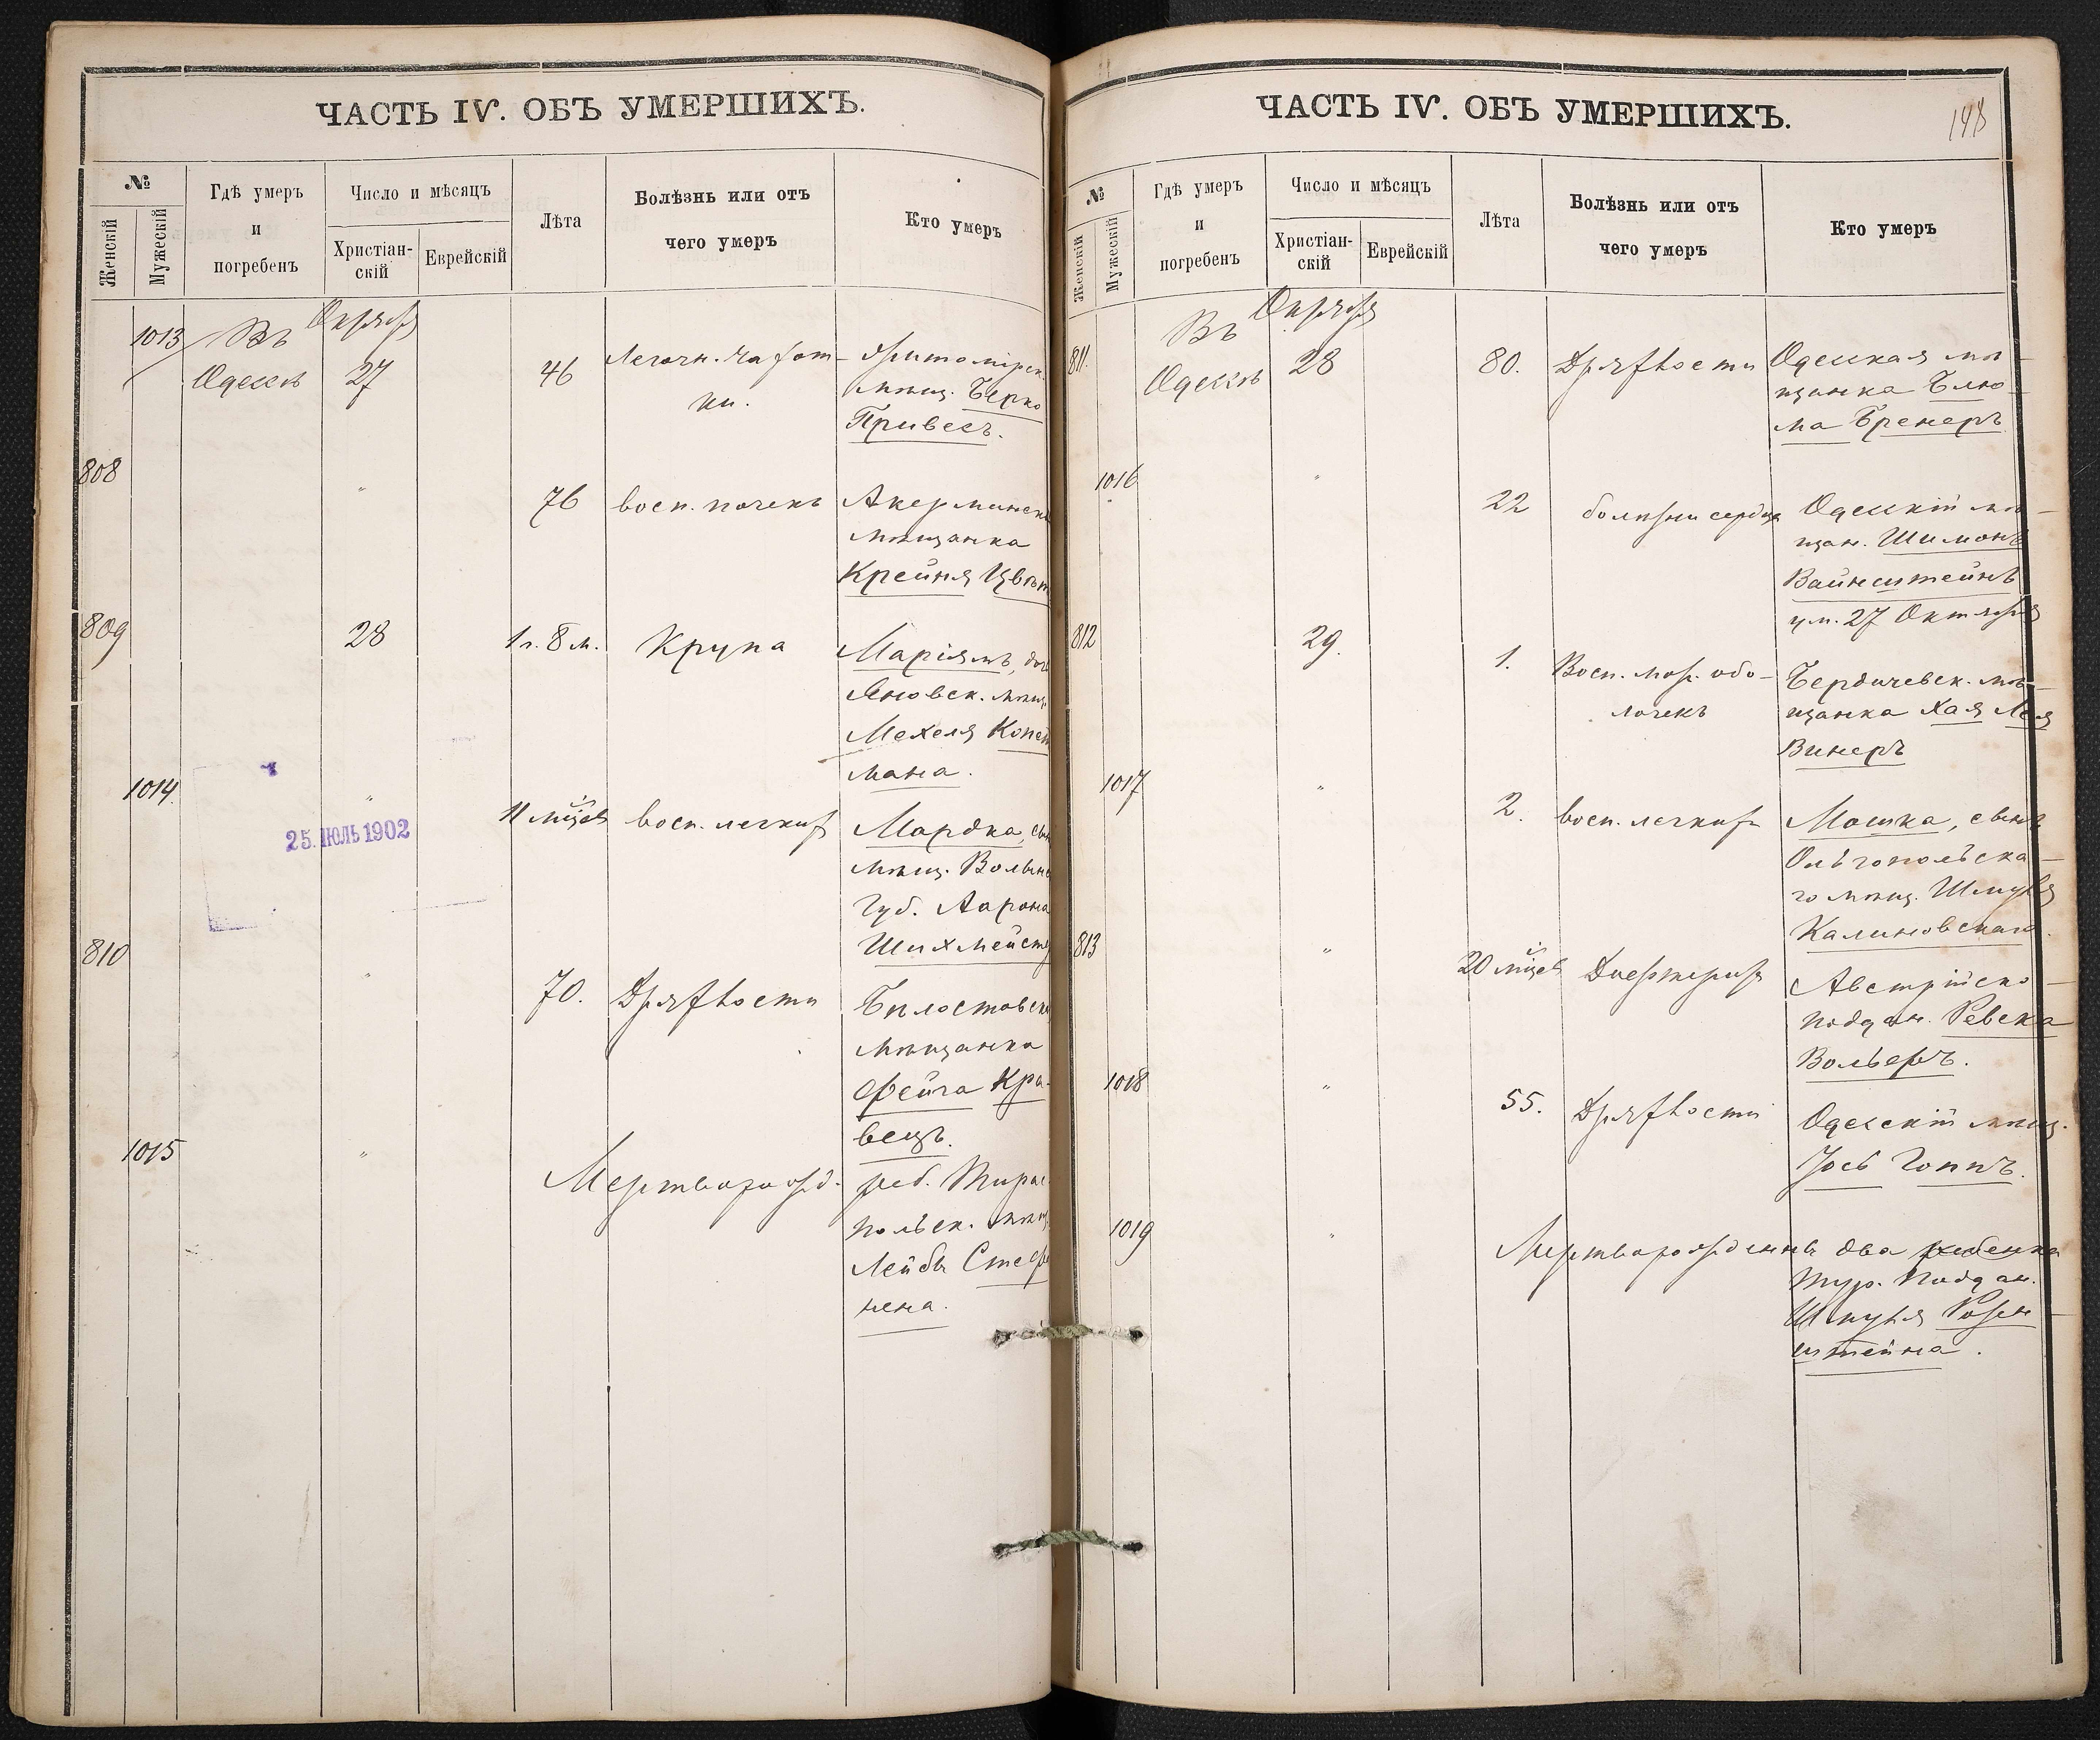 ЧАСТЬ IV. ОБЪ УМЕРШИХЪ.
№
Женскій
Мужескій
Гдѣ умеръ
и
погребенъ
Число и мѣсяцъ
Христіан-
скій
Еврейскій
Лѣта
Болѣзнь или отъ
чего умеръ
Кто умеръ
1013
Въ
Одессѣ
27
46
Легочн. чахот-
ки.
Житомірск.
мѣщ. Берко
Привесъ.
808
"
76
восп. почекъ
Акерманск
мѣщанка
Крейня Цвѣт
809
28
1 г. 8 м.
Крупа
Маріямъ, доч
Яновск. мѣщ.
Мехеля Копей
мана.
1014
"
11 мѣсц.
восп. легкихъ
Мардка, сын
мѣщ. Волын
Губ. Аарона
Шихмейст
25. ІЮЛЬ 1902
810
"
70.
Дряхлости
Бѣлостокск
мѣщанка
Фейга Кра-
вецъ.
1015
"
Мертворожд.
реб. Тирас
польск. мѣщ
Лейбы
нена.
ЧАСТЬ IV. ОБЪ УМЕРШИХЪ.
148
№
Женскій
Мужескій
Гдѣ умеръ
и
погребенъ
Число и мѣсяцъ
Христіан-
скій
Еврейскій
Лѣта
Болѣзнь или отъ
чего умеръ
Кто умеръ
811.
Въ
Одессѣ
28
80.
Дряхлости
Одесская мѣ-
щанка Блю-
ма Бренеръ
1016
"
22
болѣзни сердца
Одесскій мѣ-
щан. Шимонъ
Вайнштейнъ
ум. 27 Октября
812
29.
1.
Восп. мозг. обо-
лочекъ
Бердичевск. мѣ-
щанка Хая Лея
Винеръ
1017
"
2.
восп. легкихъ
Мошка, сынъ
Ольгопольска-
го мѣщ. Шмуля
Калиновскаго.
813
"
20 мѣсц.
Дифтерита
Австрійско-
поддан. Ревека
Вольфъ.
1018
"
55.
Дряхлости
Одесскій мѣщ.
Іось Гоппъ.
1019
"
Мертворожденнъ два ребенка
Тур. поддан.
Шмуля Розен-
штейна.